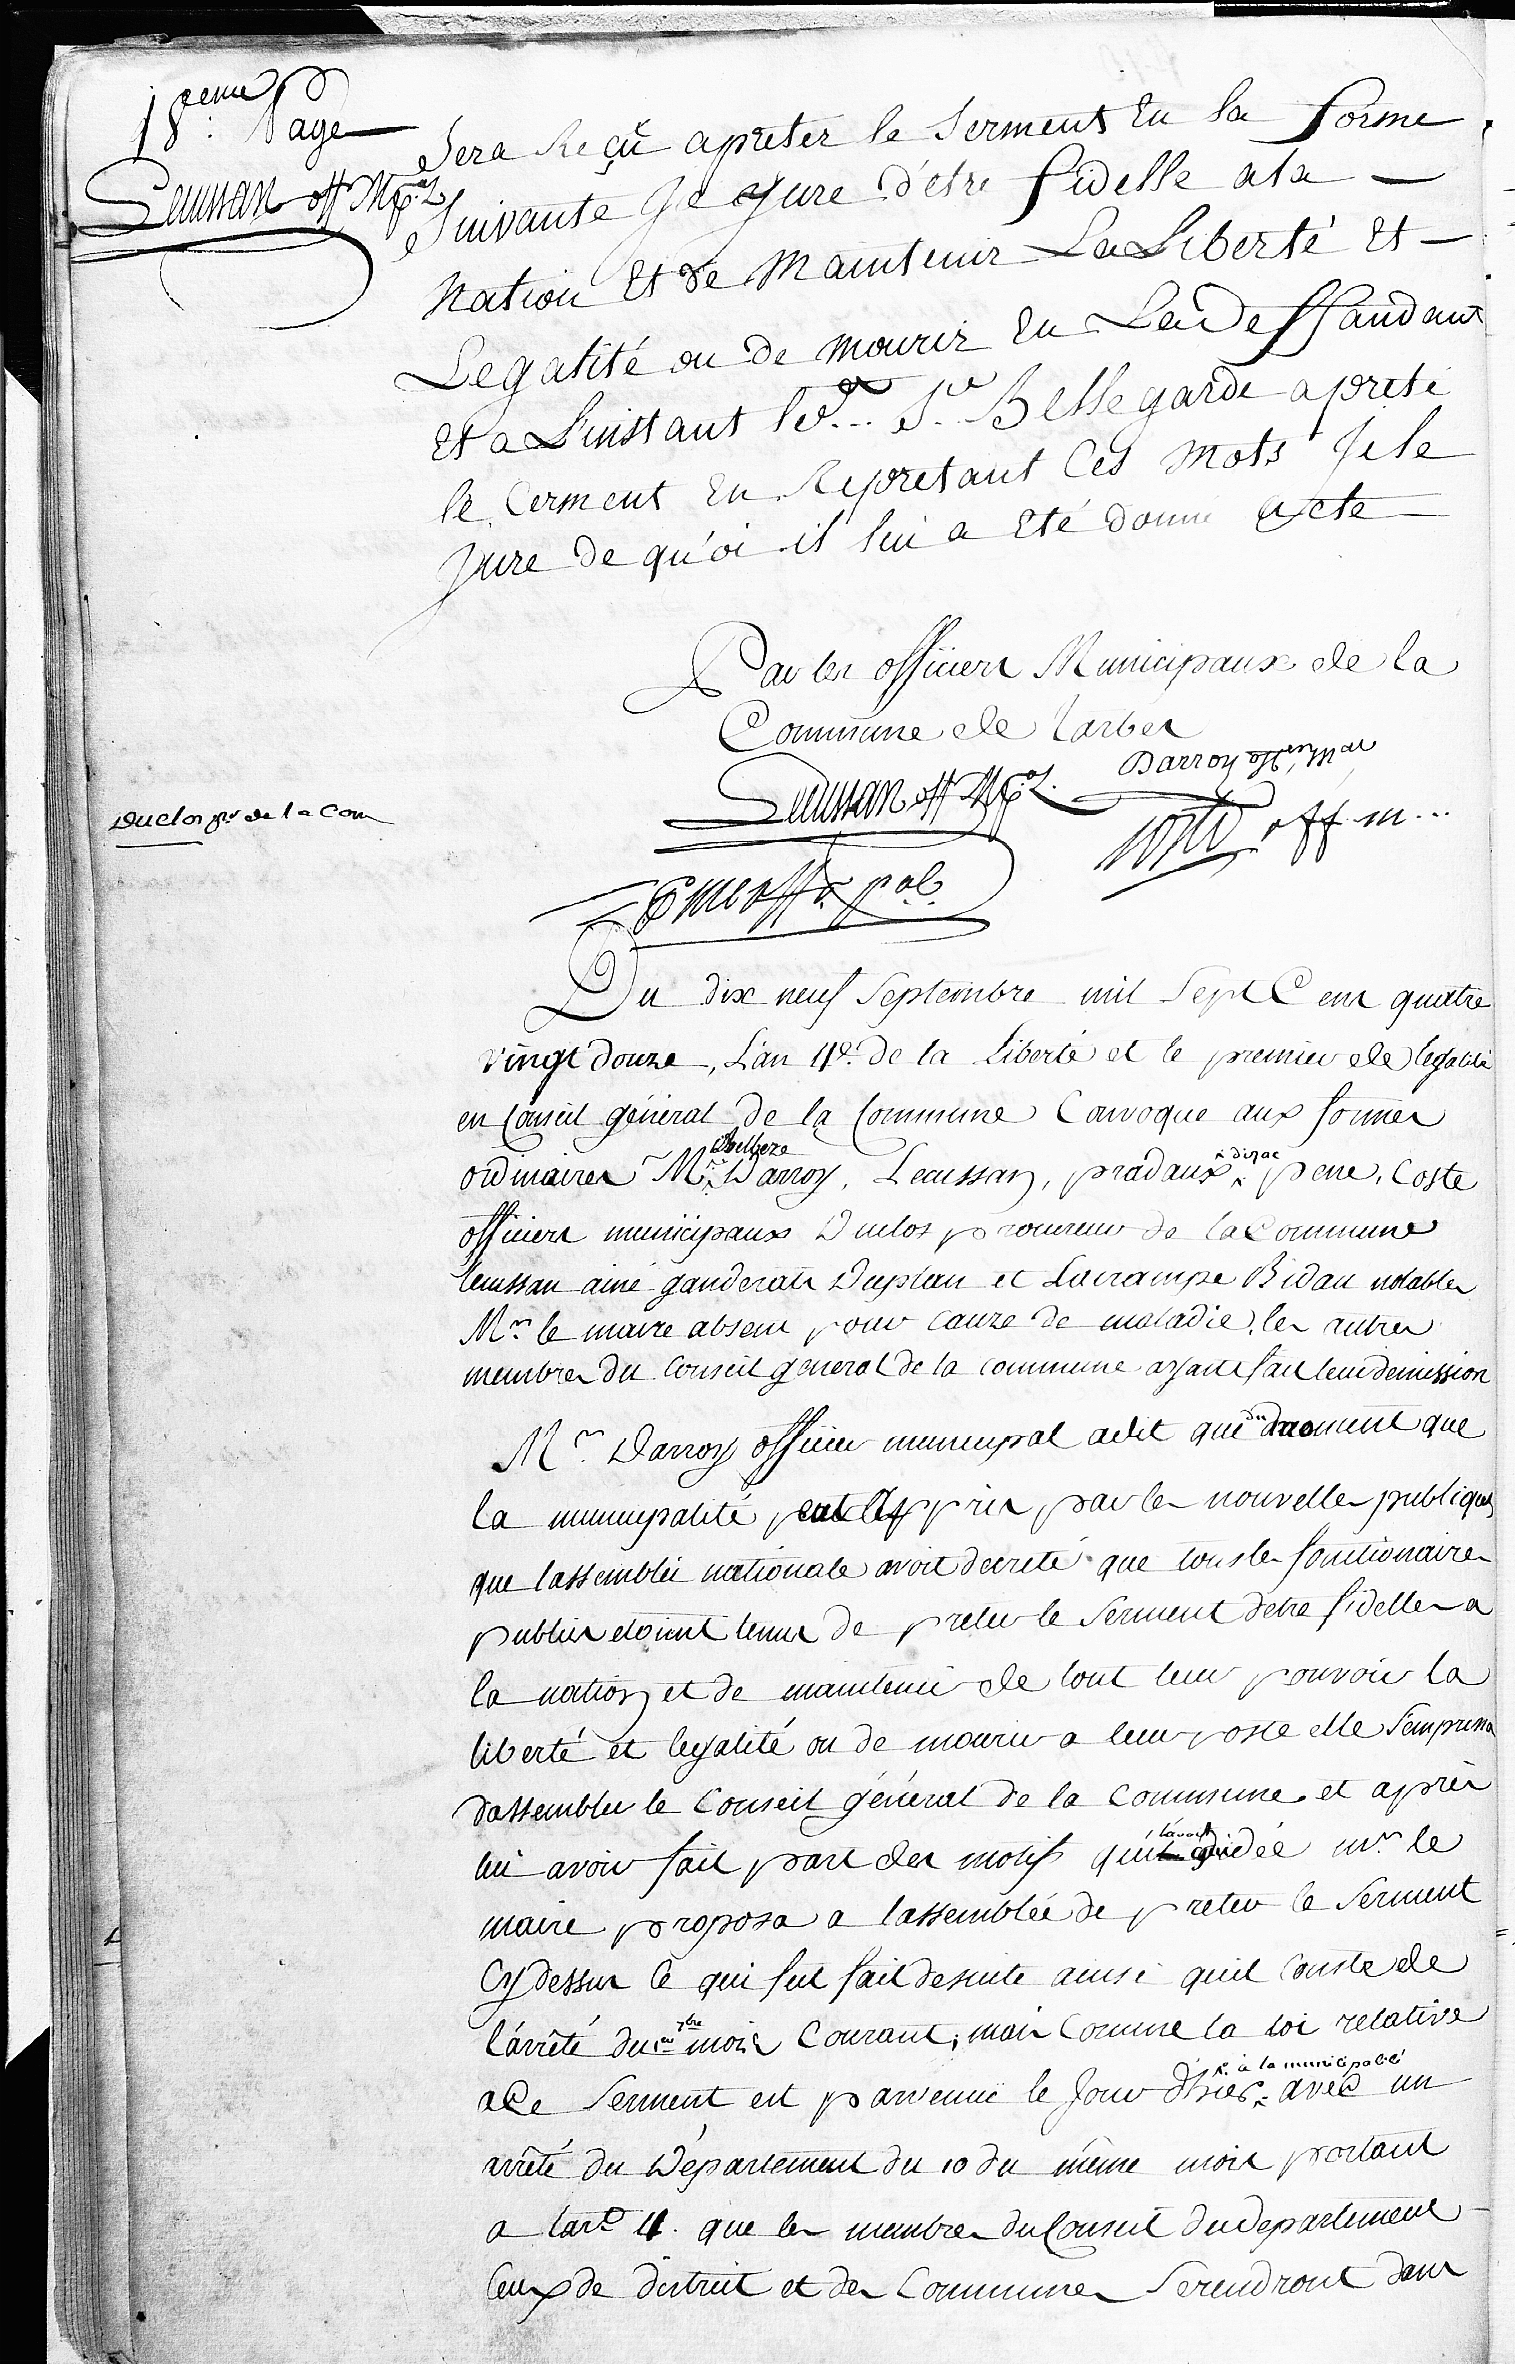 18.eme Page
Leussan off Mpal
Sera Reçü apreter le Serment En la forme
Suivante Je Jure d'etre fidelle ala
Nation Et de Maintenir La Liberté Et
Legalité ou de Mourir En Ladeffandant
Et a Linstant led. Sr. Bellegarde apreté
le Cerment En Repretant Ces Mots Jele
Jure de qu'oi il lui a Eté donné acte
Par les officiers Municipaux de la
Commune de tarbes
Darroy offer mal
Leussan off Mpal.
Duclos pr de la Com
off m...
Du dix neuf Septembre mil Sept Cent quatre
vingt douze, L'an 4e. de la Liberté et le premier de legalité
en Conseil général de la Commune Convoqué aux formes
Delbeze
ordinaires Mrs. Darroy, Leussan, pradaux ^ dizac pene, Coste
officiers municipaux Duclos procureur de la Commune
leussan ainé ganderats Duplan et Lacrampe Bidau notables
Mr. le maire absent pour cauze de maladie, les autres
membres du Conseil général de la commune ayant fait leur demission
Mr. Darroy officier municipal adit que du moment que
la municipalité eut appris par les nouvelles publiques
que lassemblée nationale avoit decreté que tous les fonctionaires
publics etoient tenus de preter le Serment detre fidelles a
la nation et de maintenir de tout leur pouvoir la
liberté et legalité ou de mourir a leur poste elle Sempressa
dassembler le Conseil général de la Commune et après
lui avoir fait part des motifs qui lavoit guidée mr. le
maire proposa a lassemblée de preter le Serment
Cydessus Ce qui fut fait desuite ainsi quil Conste de
l'arrêté du mois Courant; mais Comme la loi relative
a Ce Serment est parvenue le Jour dhier ^ à la municipalité avec un
arrêté du Département du 10 du même mois portant
a lart. 4. que les membres du Conseil du departement
Ceux de district et des Communes Serendront dans